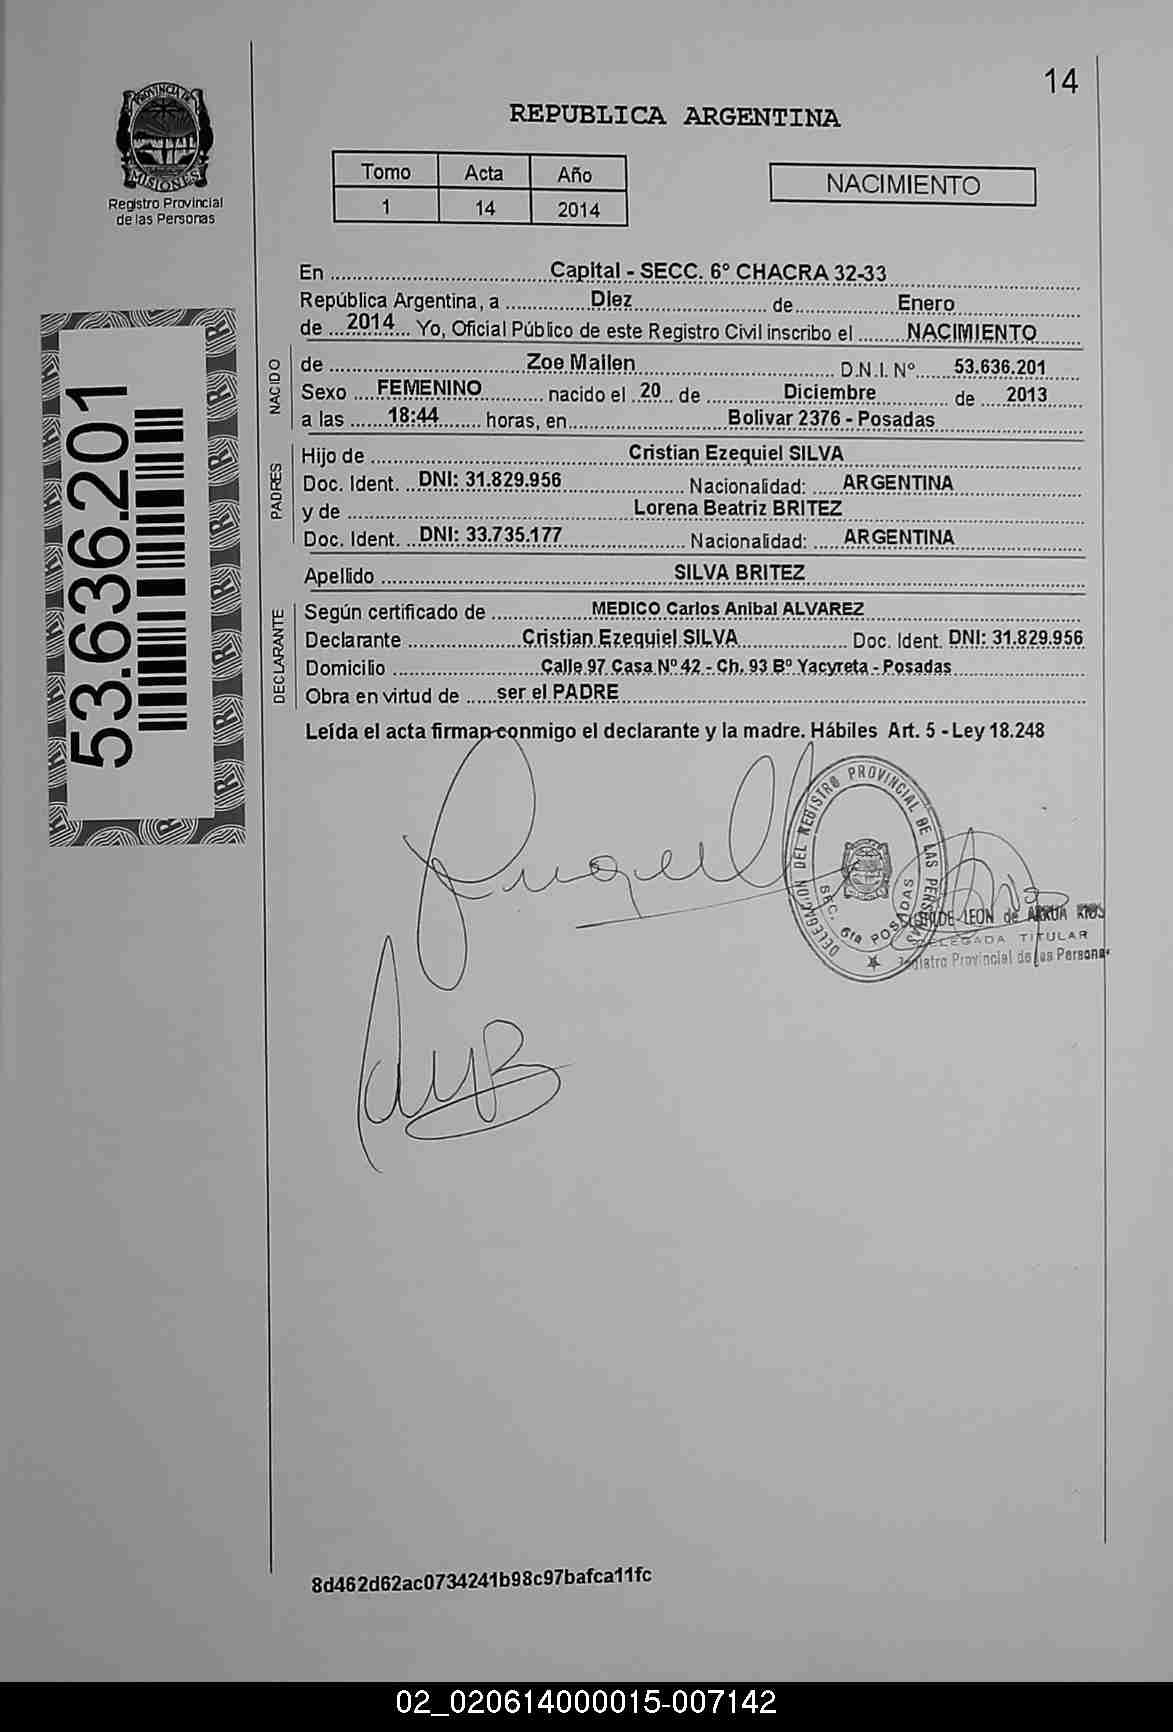 14
PROVINCIA DE
MISIONES
Registro Provincial
de las Personas
REPUBLICA ARGENTINA
Tomo Acta Año
1 14 2014
NACIMIENTO
53.636.201
En Capital - SECC. 6º CHACRA 32-33
República Argentina, a Diez de Enero
de 2014 Yo, Oficial Público de este Registro Civil inscribo el NACIMIENTO
NACIDO
de Zoe Mailen D.N.I. Nº 53.636.201
Sexo FEMENINO nacido el 20 de Diciembre de 2013
a las 18:44 horas, en Bolivar 2376 - Posadas
PADRES
Hijo de Cristian Ezequiel SILVA
Doc. Ident. DNI: 31.829.956 Nacionalidad: ARGENTINA
y de Lorena Beatriz BRITEZ
Doc. Ident. DNI: 33.735.177 Nacionalidad: ARGENTINA
Apellido SILVA BRITEZ
DECLARANTE
Según certificado de MEDICO Carlos Anibal ALVAREZ
Declarante Cristian Ezequiel SILVA Doc. Ident. DNI: 31.829.956
Domicilio Calle 97 Casa Nº 42 - Ch. 93 Bº Yacyreta - Posadas
Obra en virtud de ser el PADRE
Leída el acta firman conmigo el declarante y la madre. Hábiles Art. 5 - Ley 18.248
DELEGACION DEL REGISTRO PROVINCIAL DE LAS PERSONAS
SEC. 6ta POSADAS
DE LEON de ARRUA RIOS
DELEGADA TITULAR
Registro Provincial de las Personas
8d462d62ac0734241b98c97bafca11fc
02_020614000015-007142